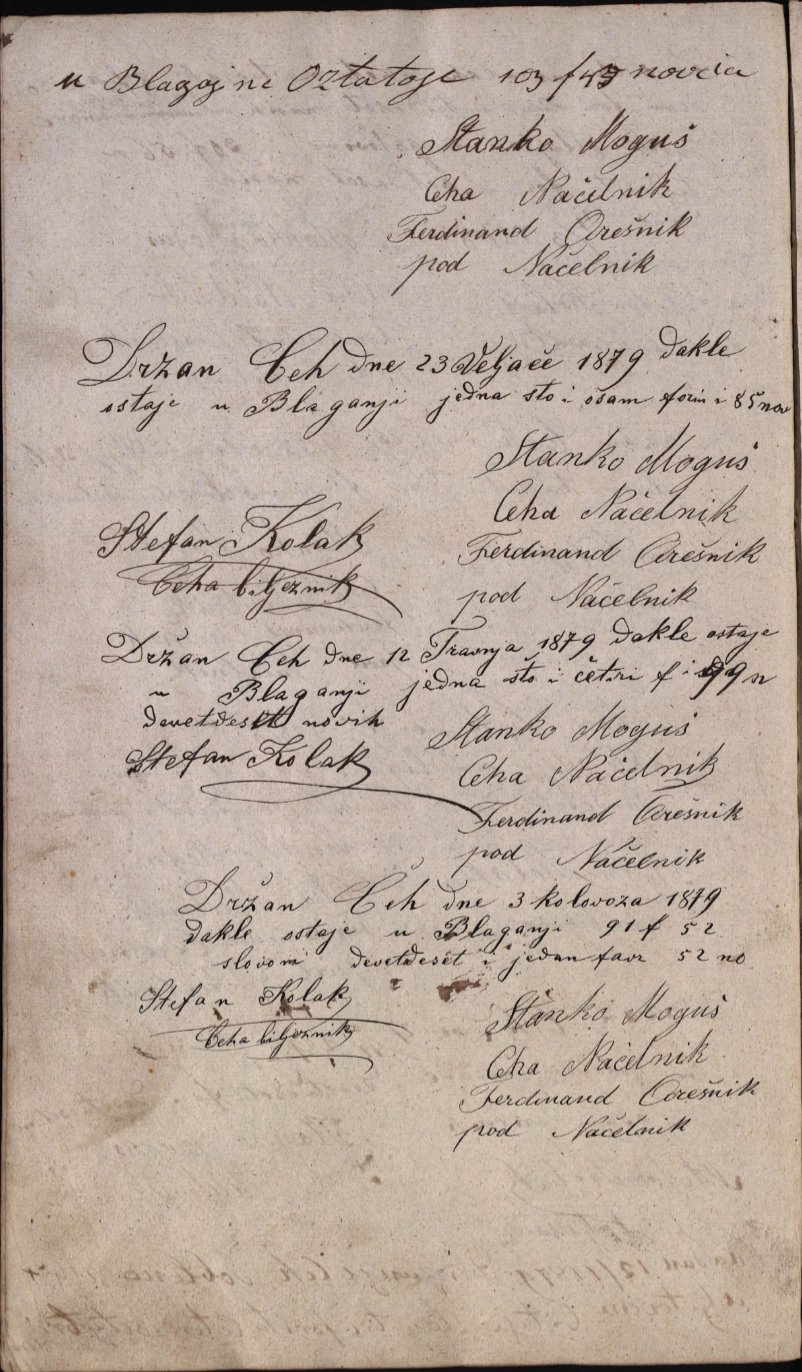 u Blagajne Oztatoje 103 f 43 novcia
Stanko Moguš
Ceha Načelnik
Ferdinand Orešnik
pod Načelnik
Držan Ceh dne 23 Veljače 1879 dakle
ostaje u Blaganji jedna sto i osam forin i 85 nov
Stanko Moguš
Ceha Načelnik
Stefan Kolak
Ferdinand Orešnik
Ceha biljeznik
pod Načelnik
Držan Ceh dne 12 Travnja 1879 dakle ostaje
u Blaganji jedna sto i četiri f i 99 n
devetdeset novih
Stanko Moguš
Stefan Kolak
Ceha Načelnik
Ferdinand Orešnik
pod Načelnik
Držan Ceh dne 3 kolovoza 1879
dakle ostaje u Blaganji 91 f 52
slovom devetdeset i jedan favr 52 no
Stefan Kolak
Stanko Moguš
Ceha biljeznik
Ceha Načelnik
Ferdinand Orešnik
pod Načelnik